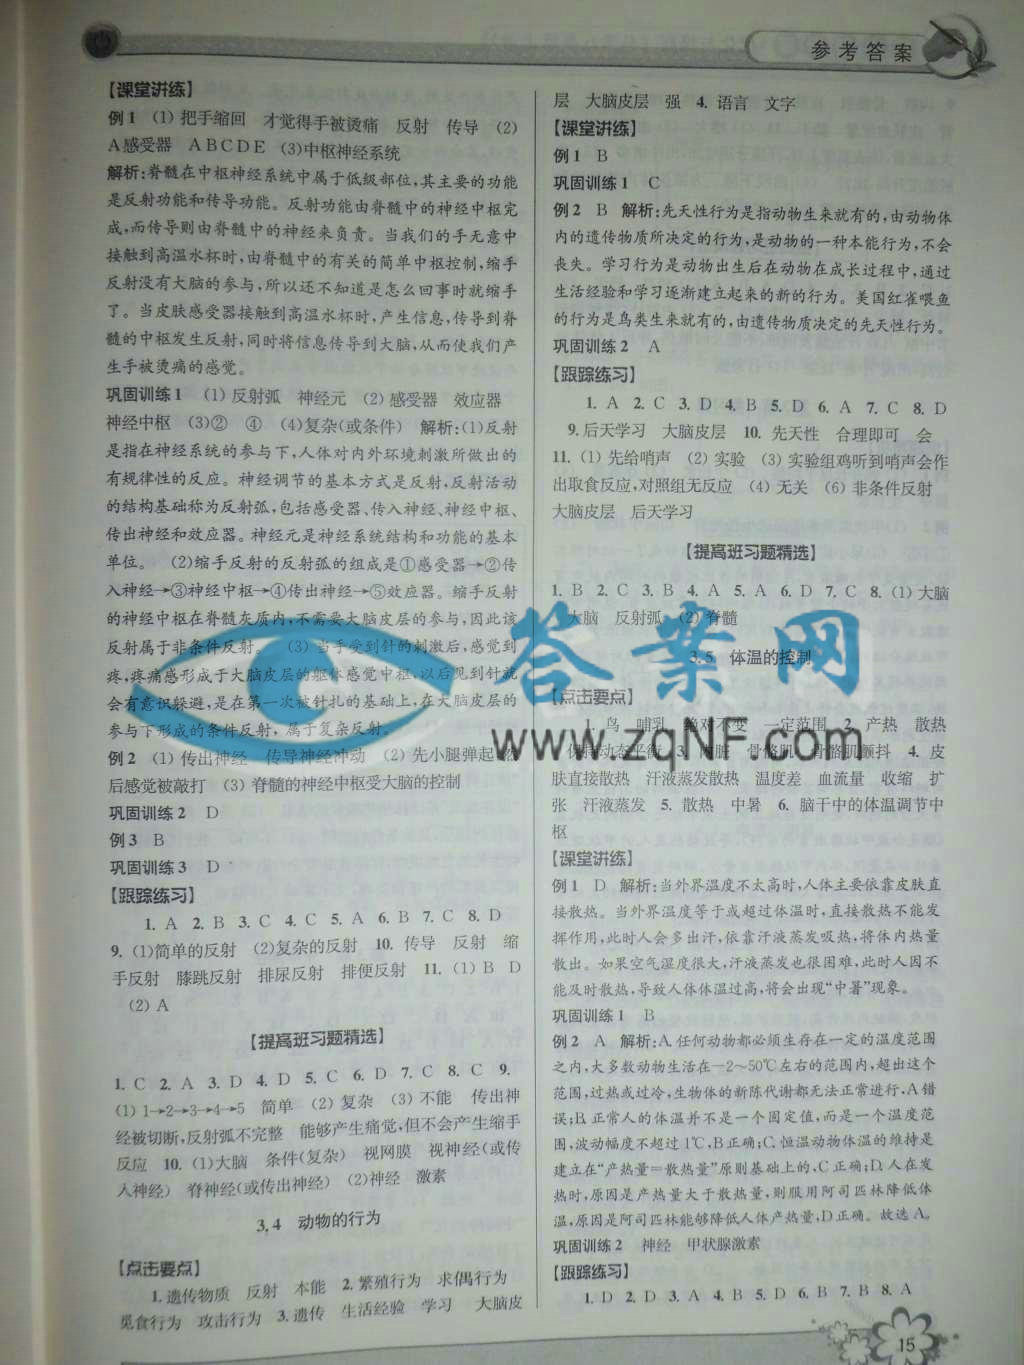 参考答案
【课堂讲练】
例1 (1)把手缩回 才觉得手被烫痛 反射 传导 (2)
A感受器 ABCDE (3)中枢神经系统
解析:脊髓在中枢神经系统中属于低级部位,其主要的功能
是反射功能和传导功能。反射功能由脊髓中的神经中枢完
成,而传导则由脊髓中的神经来负责。当我们的手无意中
接触到高温水杯时,由脊髓中的有关的简单中枢控制,缩手
反射没有大脑的参与,所以还不知道是怎么回事时就缩手
了。当皮肤感受器接触到高温水杯时,产生信息,传导到脊
髓的中枢发生反射,同时将信息传导到大脑,从而使我们产
生手被烫痛的感觉。
巩固训练1 (1)反射弧 神经元 (2)感受器 效应器
神经中枢 (3)② ④ (4)复杂(或条件) 解析:(1)反射
是指在神经系统的参与下,人体对内外环境刺激所做出的
有规律性的反应。神经调节的基本方式是反射,反射活动
的结构基础称为反射弧,包括感受器、传入神经、神经中枢、
传出神经和效应器。神经元是神经系统结构和功能的基本
单位。 (2)缩手反射的反射弧的组成是①感受器→②传
入神经→③神经中枢→④传出神经→⑤效应器。缩手反射
的神经中枢在脊髓灰质内,不需要大脑皮层的参与,因此该
反射属于非条件反射。 (3)当手受到针的刺激后,感觉到
疼,疼痛感形成于大脑皮层的躯体感觉中枢,以后见到针就
会有意识躲避,是在第一次被针扎的基础上,在大脑皮层的
参与下形成的条件反射,属于复杂反射。
例2 (1)传出神经 传导神经冲动 (2)先小腿弹起,然
后感觉被敲打 (3)脊髓的神经中枢受大脑的控制
巩固训练2 D
例3 B
巩固训练3 D
【跟踪练习】
1. A 2. B 3. C 4. C 5. A 6. B 7. C 8. D
9. (1)简单的反射 (2)复杂的反射 10. 传导 反射 缩
手反射 膝跳反射 排尿反射 排便反射 11. (1)B D
(2)A
【提高班习题精选】
1. C 2. A 3. D 4. D 5. C 6. D 7. C 8. C 9.
(1)1→2→3→4→5 简单 (2)复杂 (3)不能 传出神
经被切断,反射弧不完整 能够产生痛觉,但不会产生缩手
反应 10. (1)大脑 条件(复杂) 视网膜 视神经(或传
入神经) 脊神经(或传出神经) (2)神经 激素
3.4 动物的行为
【点击要点】
1. 遗传物质 反射 本能 2. 繁殖行为 求偶行为
觅食行为 攻击行为 3. 遗传 生活经验 学习 大脑皮
层 大脑皮层 强 4. 语言 文字
【课堂讲练】
例1 B
巩固训练1 C
例2 B 解析:先天性行为是指动物生来就有的,由动物体
内的遗传物质所决定的行为,是动物的一种本能行为,不会
丧失。学习行为是动物出生后在动物在成长过程中,通过
生活经验和学习逐渐建立起来的新的行为。美国红雀喂鱼
的行为是鸟类生来就有的,由遗传物质决定的先天性行为。
巩固训练2 A
【跟踪练习】
1. A 2. C 3. D 4. B 5. D 6. A 7. C 8. D
9. 后天学习 大脑皮层 10. 先天性 合理即可 会
11. (1)先给哨声 (2)实验 (3)实验组鸡听到哨声会作
出取食反应,对照组无反应 (4)无关 (6)非条件反射
大脑皮层 后天学习
【提高班习题精选】
1. B 2. C 3. B 4. A 5. A 6. D 7. C 8. (1)大脑
大脑 反射弧 (2)脊髓
3.5 体温的控制
【点击要点】
1. 鸟 哺乳 绝对不变 一定范围 2. 产热 散热
保持动态平衡 3. 内脏 骨骼肌 骨骼肌颤抖 4. 皮
肤直接散热 汗液蒸发散热 温度差 血流量 收缩 扩
张 汗液蒸发 5. 散热 中暑 6. 脑干中的体温调节中
枢
【课堂讲练】
例1 D 解析:当外界温度不太高时,人体主要依靠皮肤直
接散热。当外界温度等于或超过体温时,直接散热不能发
挥作用,此时人会多出汗,依靠汗液蒸发吸热,将体内热量
散出。如果空气湿度很大,汗液蒸发也很困难,此时人因不
能及时散热,导致人体体温过高,将会出现“中暑”现象。
巩固训练1 B
例2 A 解析:A. 任何动物都必须生存在一定的温度范围
之内,大多数动物生活在-2~50℃左右的范围内,超出这个
范围,过热或过冷,生物体的新陈代谢都无法正常进行,A错
误;B. 正常人的体温并不是一个固定值,而是一个温度范
围,波动幅度不超过1℃,B正确;C. 恒温动物体温的维持是
建立在“产热量=散热量”原则基础上的,C正确;D. 人在发
热时,原因是产热量大于散热量,则服用阿司匹林降低体
温,原因是阿司匹林能够降低人体产热量,D正确。故选A。
巩固训练2 神经 甲状腺激素
【跟踪练习】
1. D 2. D 3. A 4. B 5. D 6. B 7. B 8. A
15
答案网
www.zqNF.com